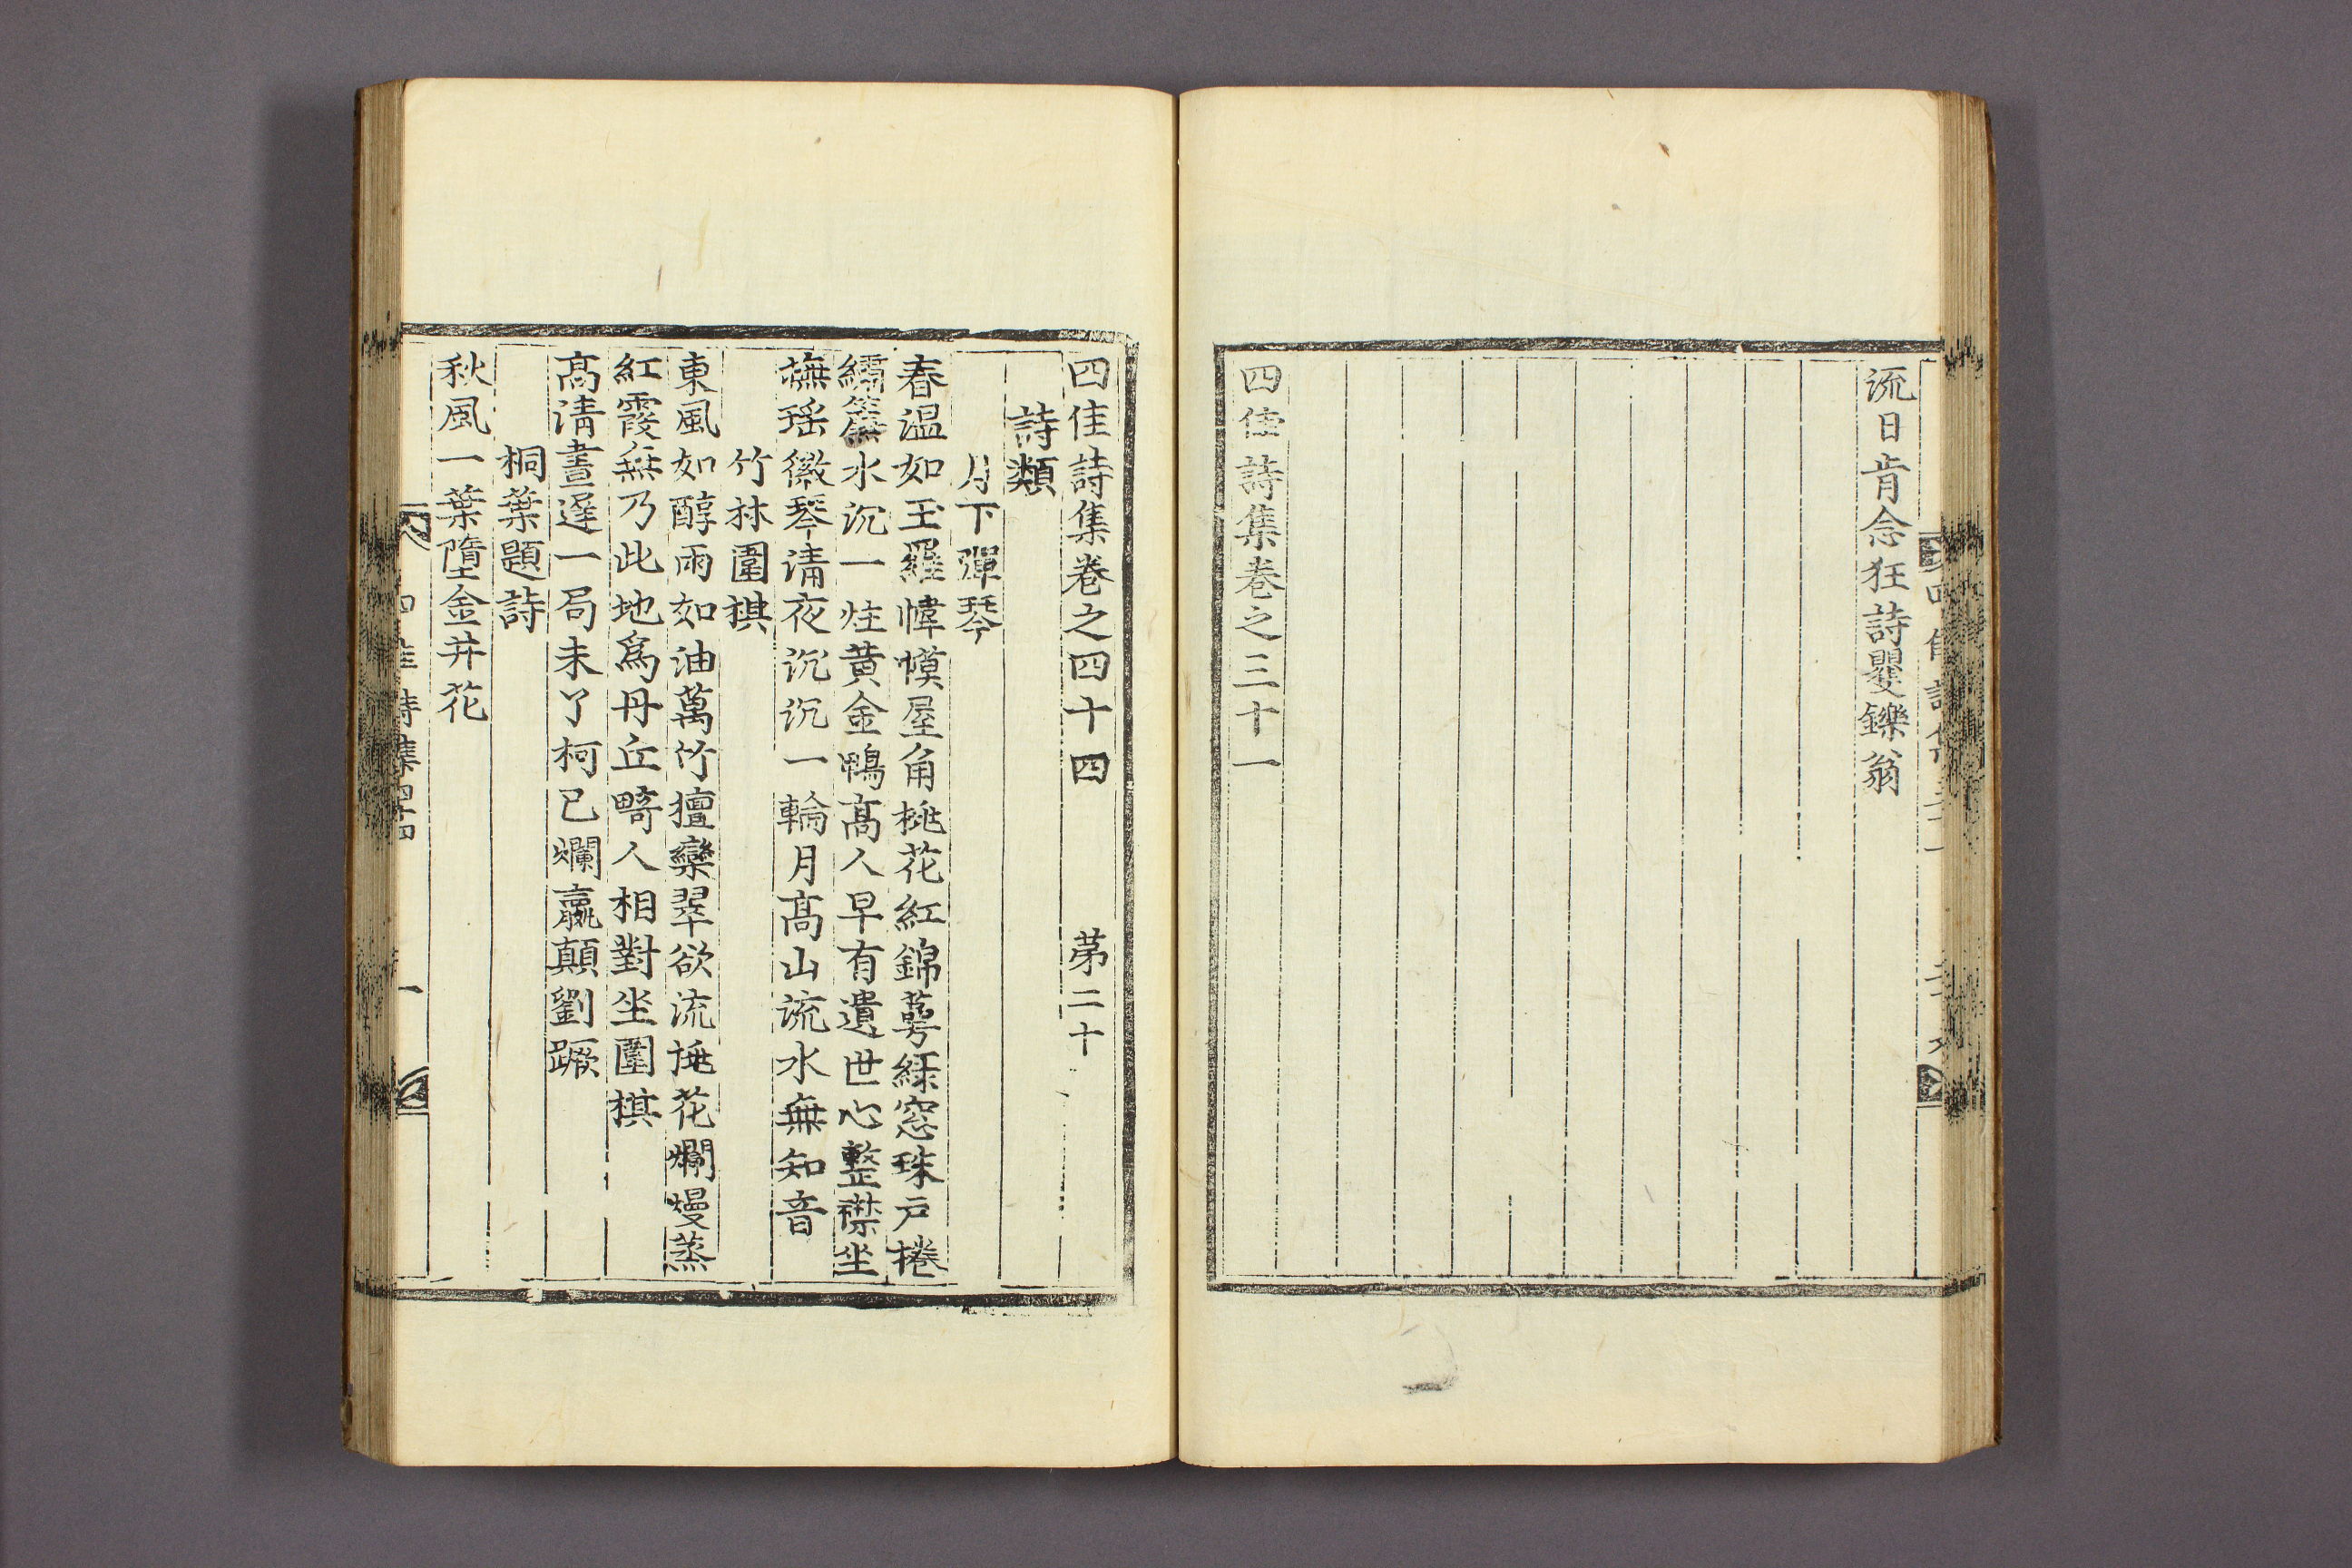 流日肯念狂詩矍鑠翁
四佳詩集卷之三十一
四佳詩集卷之四十四 第二十
詩類
月下彈琴
春温如玉羅幃幙屋角桃花紅錦萼綠窓珠戶捲
繡簾水沉一炷黃金鴨高人早有遺世心整襟坐
撫瑤徽琴淸夜沉沉一輪月高山流水無知音
竹林圍棋
東風如醇雨如油萬竹擅欒翠欲流桃花爛熳蒸
紅霞無乃此地爲丹丘畸人相對坐圍棋
高淸晝遲一局未了柯已爛贏顚劉蹶
桐葉題詩
秋風一葉墮金井花
四佳詩集四十四 一